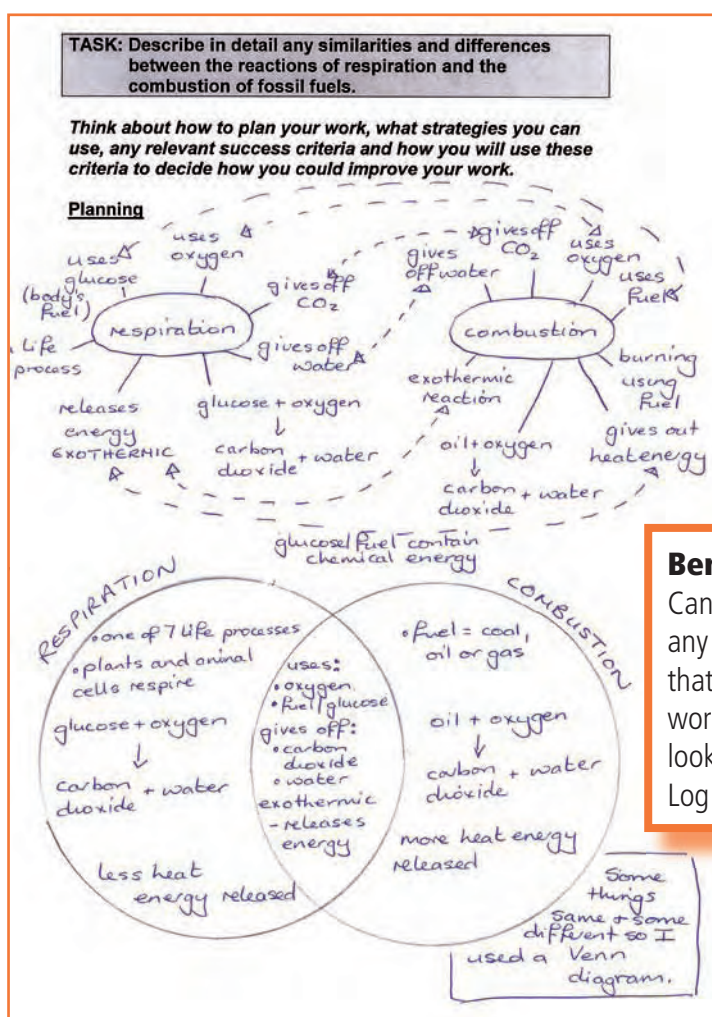 TASK: Describe in detail any similarities and differences
between the reactions of respiration and the
combustion of fossil fuels.
Think about how to plan your work, what strategies you can
use, any relevant success criteria and how you will use these
criteria to decide how you could improve your work.
Planning
uses
glucose
(body's
fuel)
uses
oxygen
gives off
CO2
gives off
water
respiration
Life
process
releases
energy
EXOTHERMIC
glucose + oxygen
↓
carbon
dioxide + water
gives
off water
gives off
CO2
uses
oxygen
uses
fuel
combustion
burning
using
fuel
exothermic
reaction
oil + oxygen
↓
carbon
dioxide + water
gives out
heat energy
glucose/fuel contain
chemical energy
RESPIRATION
• one of 7 life processes
• plants and animal
cells respire
glucose + oxygen
↓
carbon
dioxide + water
less heat
energy released
uses:
• oxygen
• fuel/glucose
gives off:
• carbon
dioxide
• water
exothermic
- releases
energy
COMBUSTION
• fuel = coal,
oil or gas
oil + oxygen
↓
carbon
dioxide + water
more heat energy
released
Some
things
same + some
different so I
used a Venn
diagram.
Ben
Can
any
that
wor
look
Log